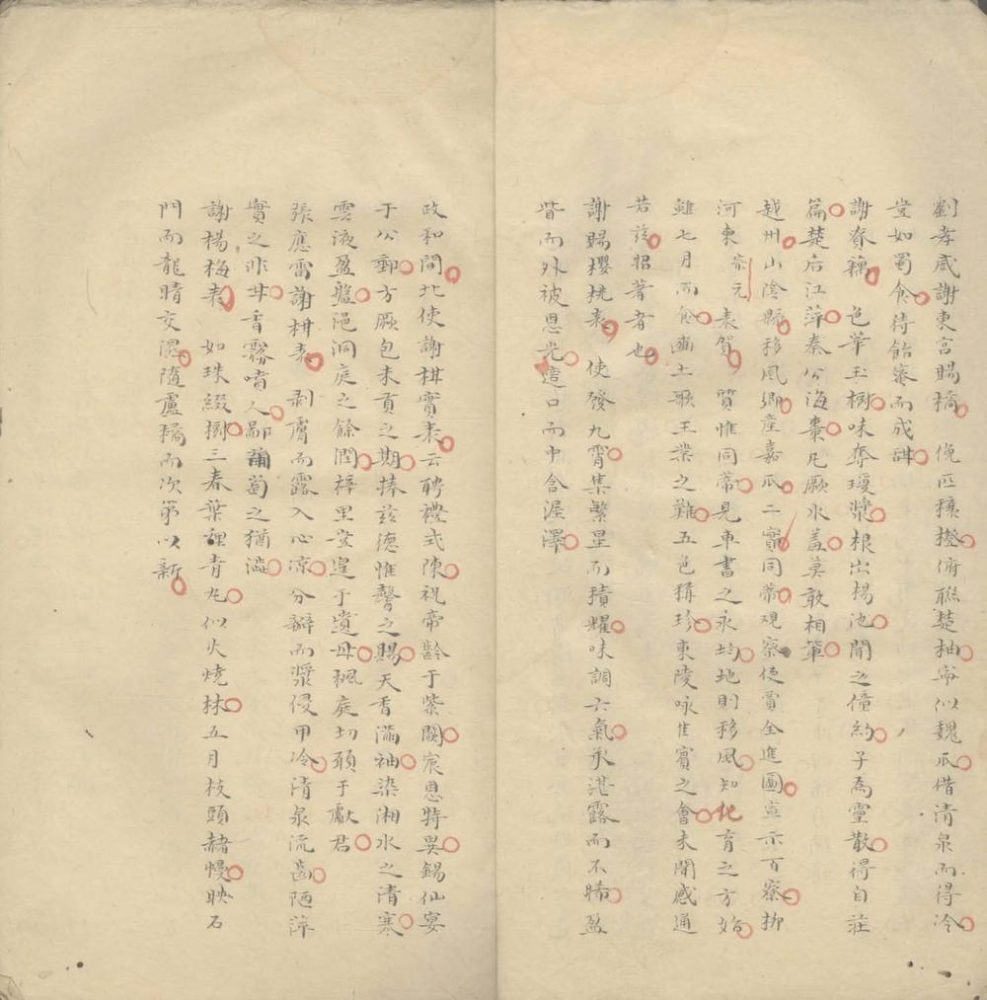 劉孝威謝東宮賜橘　俛匹穰橙俯聯楚柚寧似魏瓜借清泉而得冷
豈如蜀食待飴蜜而成甜
謝賚藕　色華玉樹味奪瓊漿根出楊池聞之僮約子為靈散得自莊
篇楚后江萍秦公海棗凡厥水羞莫敢相輩
越州山陰縣移風鄉產嘉瓜二實同蒂觀察使賈全進圖宣示百寮柳
河東宗元表賀　質惟同蒂見車書之永均地則移風知化育之方始
雖七月而食豳土歌王業之難五色稱珍東陵咏隹賓之會未聞感通
若茲昭著者也
謝賜櫻桃表　使發九霄集繁星而積耀味調六氣承湛露而不晞盈
眥而外被恩光適口而中含渥澤
政和間北使謝柑實表云聘禮式陳祝帝齡于紫闕宸恩特異錫仙宴
于公郵方厥包未貢之期捧茲德惟馨之賜天香滿袖染湘水之清寒
雲液盈盤浥洞庭之餘潤梓里安遑于遺母楓庭切願于獻君
張應雷謝柑表　剖膚而露入心凉分瓣而漿侵甲冷清泉流齒陋萍
實之非甘香霧噀人鄙萄之猶澁
謝楊梅表　如珠綴樹三春葉裡青丸似火燒林五月枝頭赭幔映石
門而龍睛交混隨盧橘而次第以新